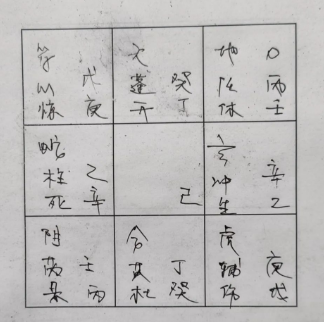 符心惊
戊庚
天蓬开
癸丁
地任休
O丙壬
蛇柱死
乙辛
己
玄冲生
辛乙
阴芮景
壬丙
合英杜
丁癸
虎辅伤
庚戊